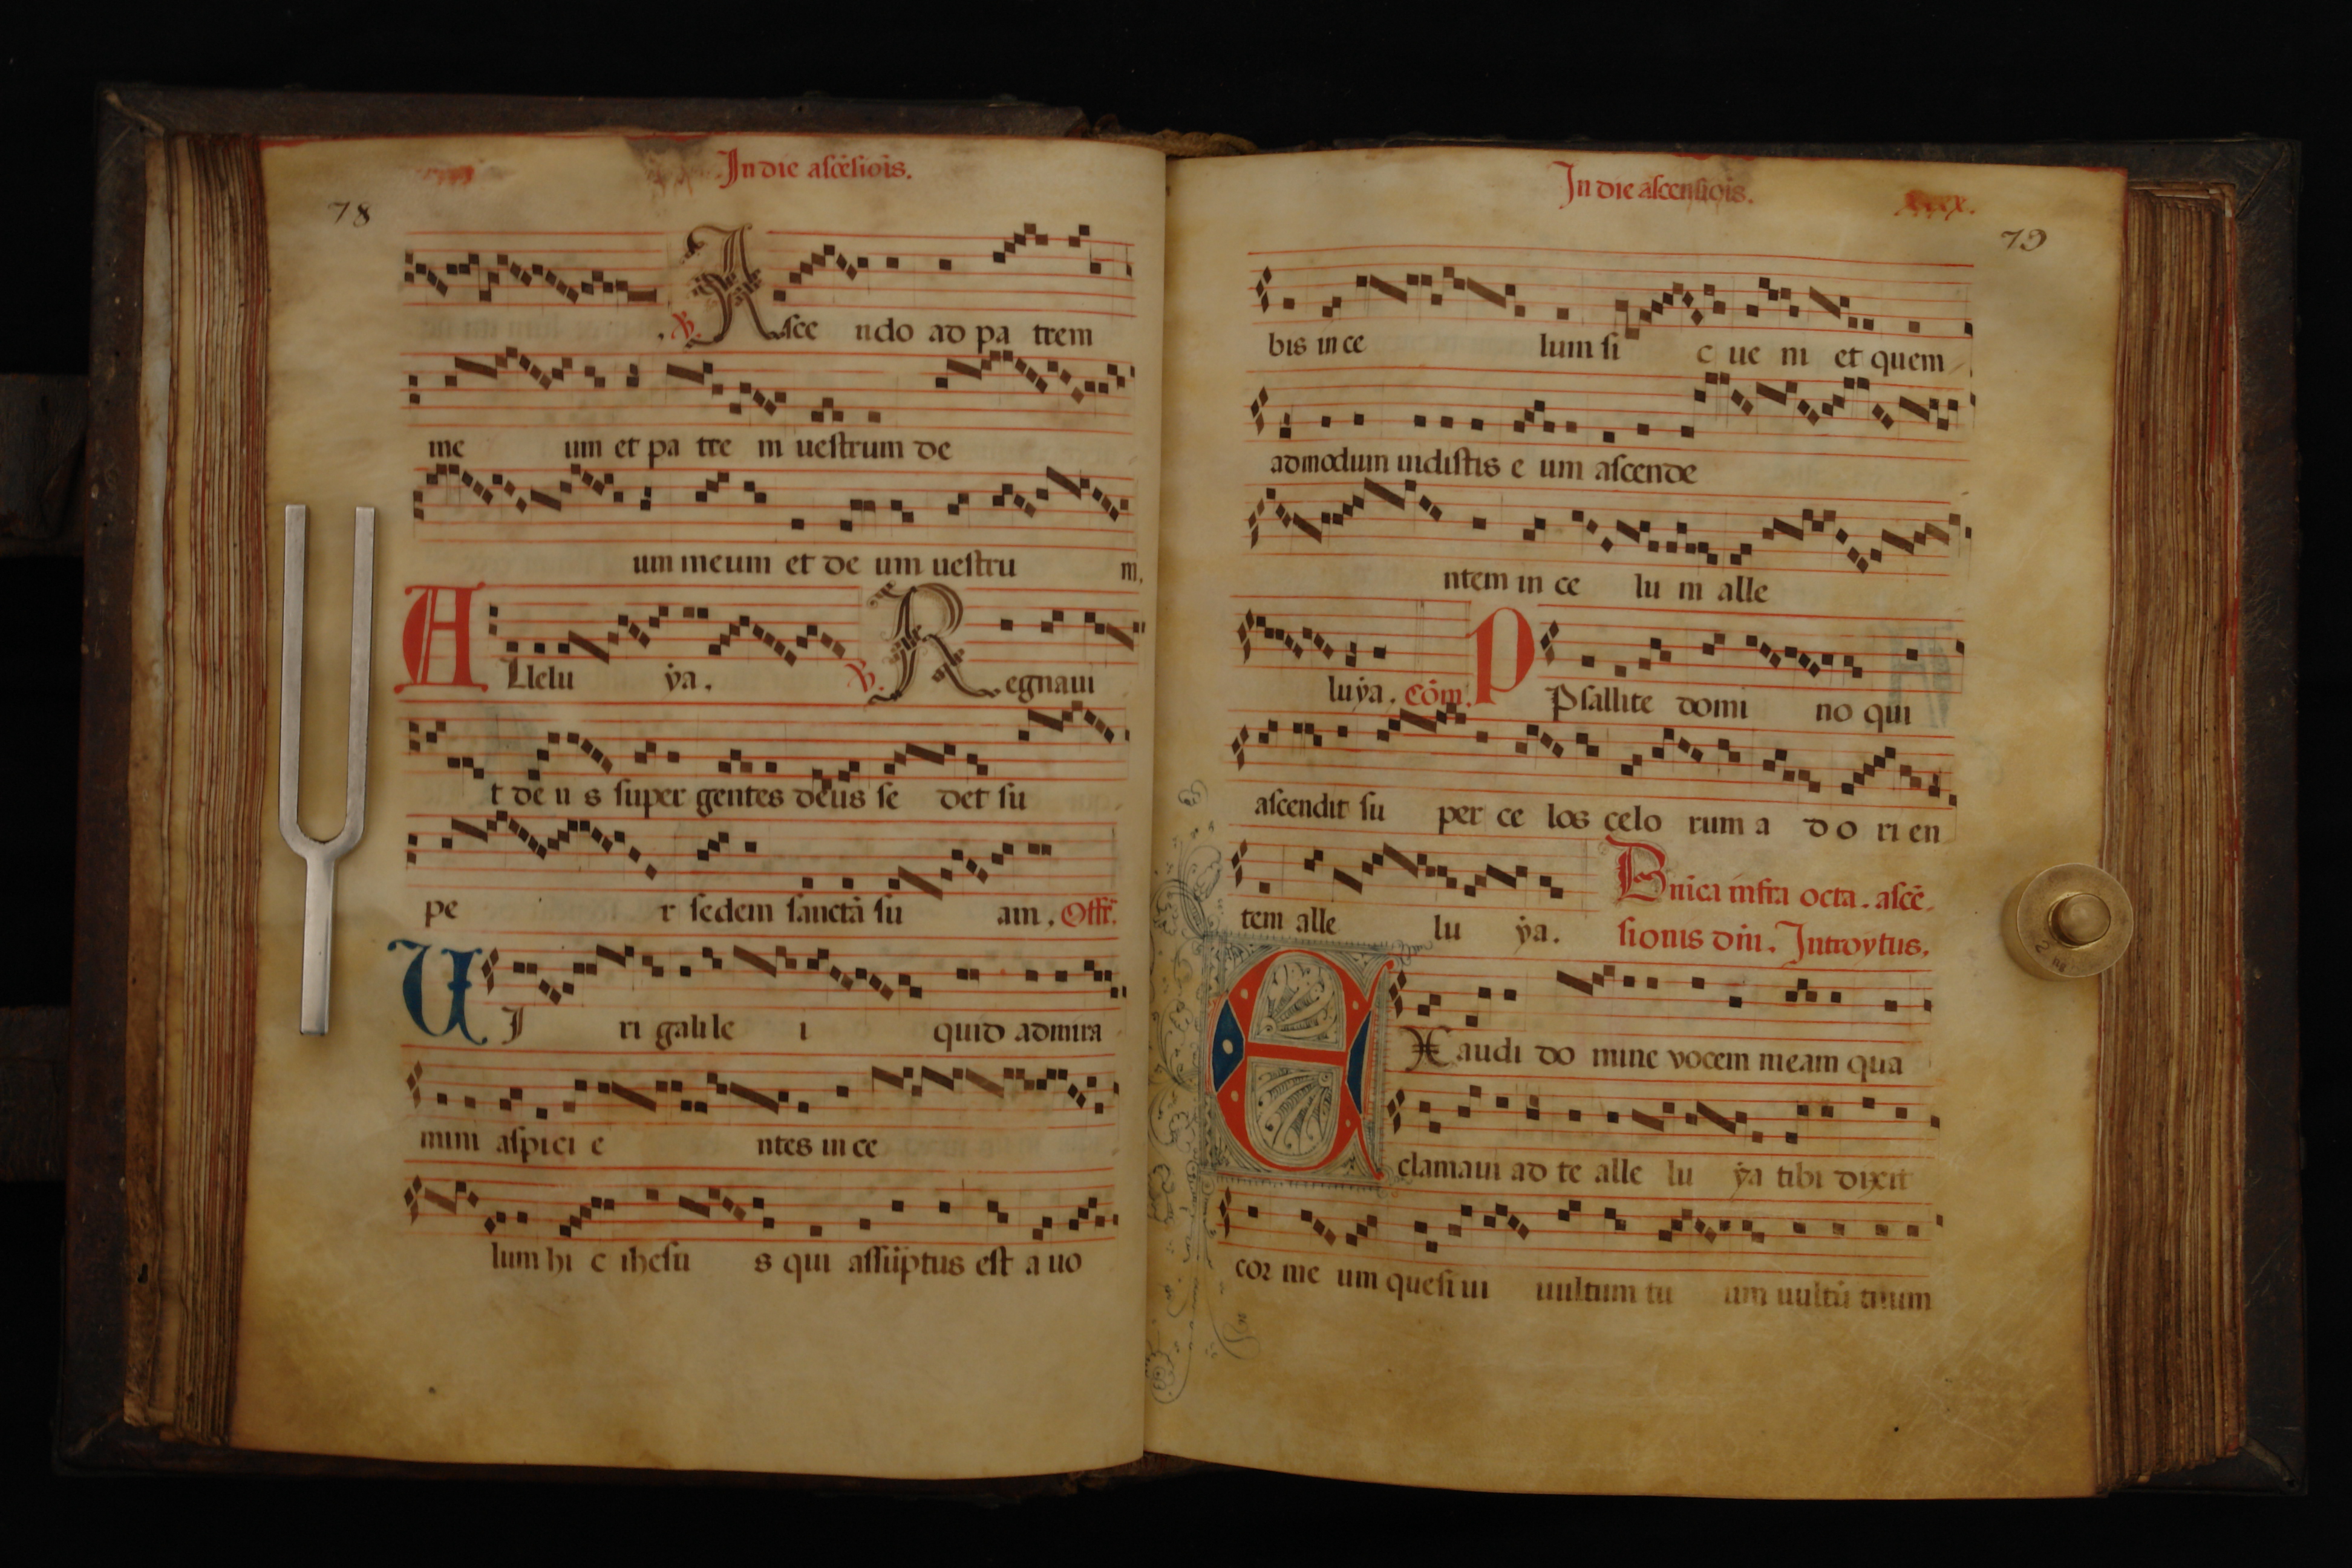 In die ascēsiois.
78
. ℣. Asce ndo ad pa trem
me um et pa tre m uestrum de
um meum et de um uestru m.
Allelu ẏa. ℣. Regnaui
t de u s super gentes deus se det su
pe r sedem sanctā su am. Offr̄.
VI ri galile i quid admira
mini aspici e ntes in ce
lum hi c ihesu s qui assūptus est a uo
In die ascensiois.
79
bis in ce lum si c ue ni et quem
admodum uidistis e um ascende
ntem in ce lu m alle
luẏa. Cōm. PPsallite domi no qui
ascendit su per ce los celo rum a d o ri en
tem alle lu ẏa. Dnica infra octa. ascē-
sionis dn̄i. Introytus.
EXaudi do mine vocem meam qua
clamaui ad te alle lu ẏa tibi dixit
cor me um quesi ui uultum tu um uultū tuum